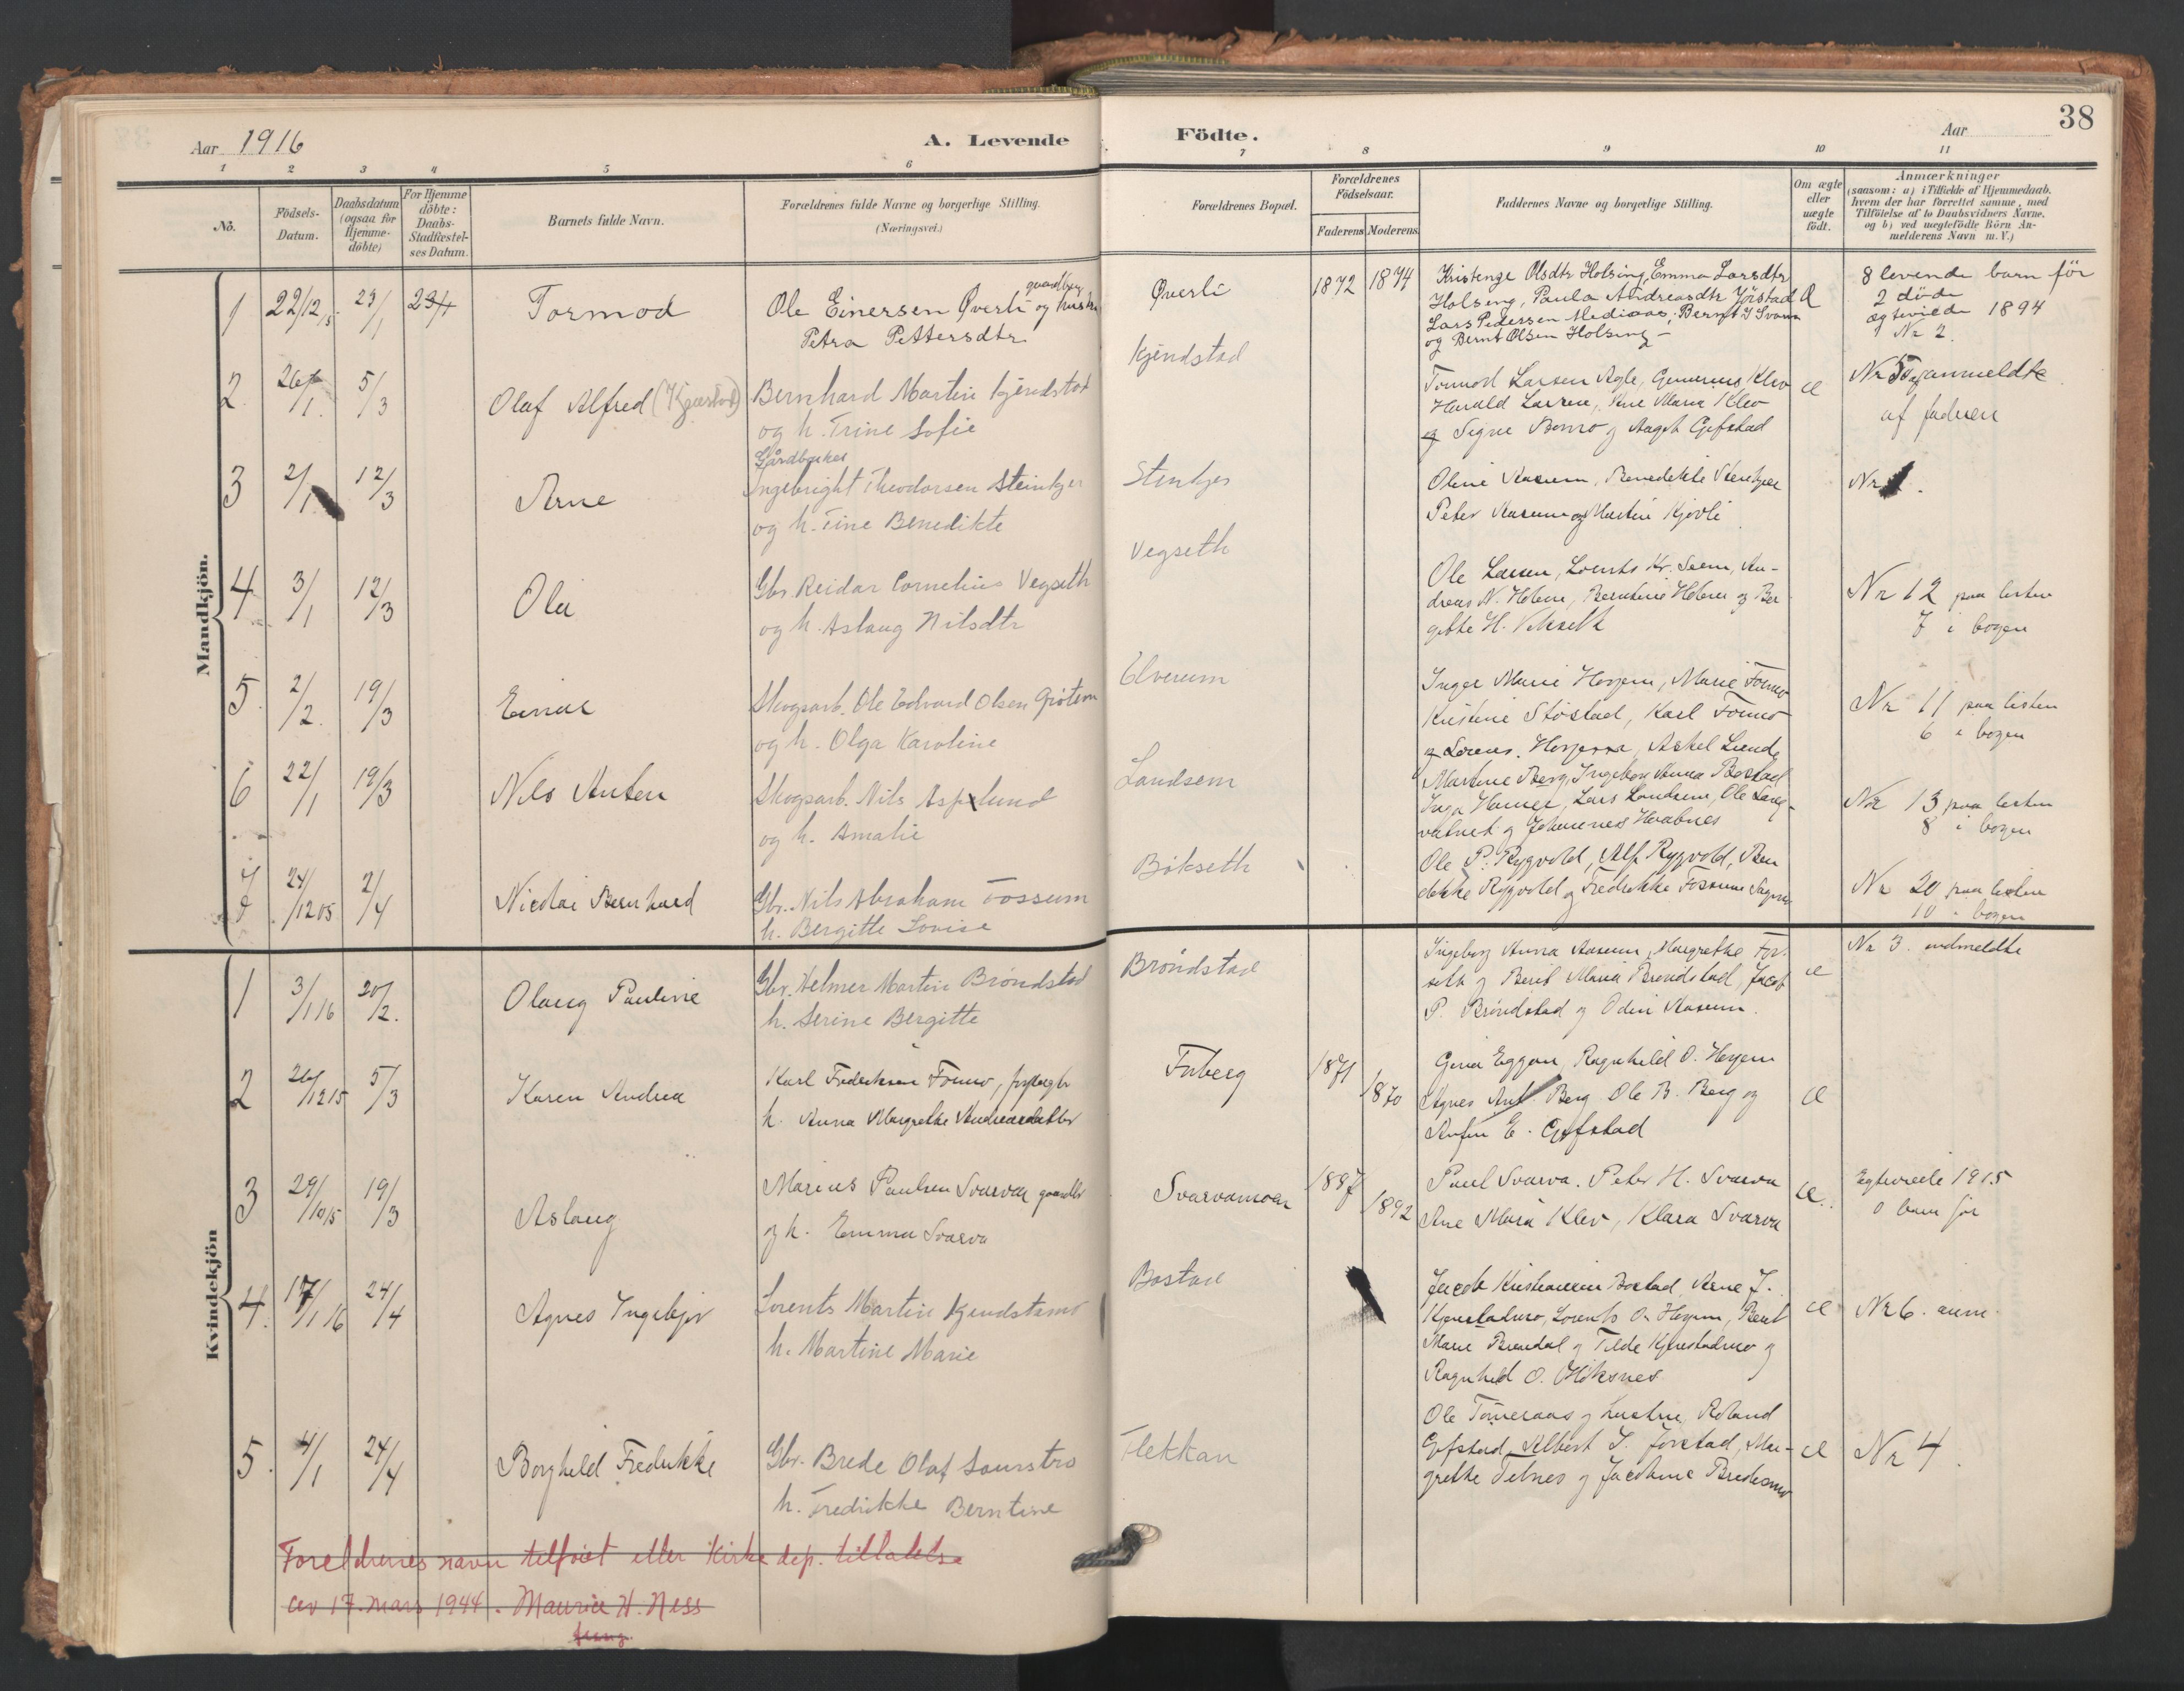 Aar 1916
A. Levende
Födte.
Aar
38
1 2 3 4 5 6 7 8 9 10 11
No.
Födsels-Datum.
Daabsdatum (ogsaa for Hjemme-döbte)
For Hjemme döbte: Daabs-Stadfæstel-ses Datum.
Barnets fulde Navn.
Forældrenes fulde Navne og borgerlige Stilling.
(Næringsvei.)
Forældrenes Bopæl.
Forældrenes Födselsaar.
Faderens Moderens
Faddernes Navne og borgerlige Stilling.
Om ægte eller uægte födt.
Anmærkninger
(saasom: a) i Tilfælde af Hjemmedaab,
hvem der har forrettet samme, med
Tilföielse af to Daabsvidners Navne,
og b) ved uægtefödte Börn An-
melderens Navn m. V.)
Mandkjön.
1 22/12 15. 23/1 23/1 Tormod
gaardbrug
Ole Einersen Øverli og hustru
Petra Pettersdtr
Øverli 1872 1874
Kristense Olsdtr Holsing, Emma Larsdtr
Holsing, Paula Andreasdtr Jörstad
Lars Pedersen Mediaas, Bernt J Svarva
og Bernt Olsen Holsing
8 levende barn för
2 döde
ægteviede 1894
Nr 2.
2 26/1. 5/3 Olaf Alfred (Kjærstad)
Bernhard Martin Kjendstad
og h. Trine Sofie
Kjendstad
Tormod Larsen Agle, Klev
Harald Larsen, Ane Maria Klev
og Signe og Aagot Gifstad
æ
Nr 5 anmeldte
af faderen
3 2/1 12/3 Arne
Gårdbruker
Ingebright Theodorsen Steinkjer
og h. Tine Benedikte
Stenkjer
Oline Aasum, Benedikte Stenkjer
Peter Aasum og Martin Kjövli
Nr 1.
4 3/1 12/3 Ola
Gbr. Reidar Cornelius Vegseth
og h. Aslaug Nilsdtr
Vegseth
Ole Larsen, Lorents Kr. Seem, An-
dreas N. Holem, Berntine Holem og Ber
gitte H. Vekseth
Nr 12 paa listen
7 i bogen
5. 2/2. 19/3 Einar
Skogsarb. Ole Edvard Olsen Gröten
og h. Olga Karoline
Elverum
Inger Marie Hojem, Marie Formo
Kristine Støstad, Karl Formo
og Lorens. Hojem, Askel Luende
Nr 11 paa listen
6 i bogen
6 22/1 19/3 Nils Anton
Skogsarb. Nils Asplund
og h. Amalie
Landsem
Martine Berg, Ingeborg Anna Bostad
Inga Hammer, Lars Landsem, Ole Lang-
vatnet og Johannes Havbnes
Nr 13 paa listen
8 i bogen
7 24/12 05 2/4 Nicolai Bernhard
Gbr. Nils Abraham Fossum
h. Bergitte Lovise
Bökseth
Ole P. Rygvold, Alf Rygvold, Ben
dikke Rygvold og Fredrikke Fossum
Nr 20 paa listen
10 i bogen
Kvindekjön
1 3/1 16 20/2. Olaug Pauline
Gbr. Helmer Martin Bröndstad
h. Serine Bergitte
Bröndstad
Ingeborg Anna Aasum, Margrethe For-
seth og Berit Maria Bröndstad, Jacob
P. Bröndstad og Odin Aasum.
æ
Nr 3. anmeldte
2 26/12 15 5/3 Karen Andrea
Karl Fredriksen Formo, forpagter
h. Anna Margrethe Andreasdatter
Finberg 1871 1870
Gina Eggen, Ragnhild O. Hojem
Agnes Ant. Berg Ole B. Berg og
Arfin E. Gifstad
æ
3 29/10 15 19/3 Aslaug
Marius Paulsen Svarva gaardbr
og h. Emma Svarva
Svarvamoen 1887 1892
Paul Svarva. Peter H. Svarva
Ane Mara Klev, Klara Svarva
æ.
Egteviede 1915
0 barn før
4. 17/1 16 24/4 Agnes Ingebjør
Lorents Martin Kjendstamo
h. Martine Marie
Bostad
Jacob Kristiansen Bostad, Arne J.
Kjenstadmo, Lorents O. Hojem, Berit
Marie Brendal og Tilde Kjenstadmo og
Ragnhild O. Höksnes
æ
Nr 6. anm.
5. 4/1 24/4 Borghild Fredrikke
Gbr. Brede Olaf Saurstro
h. Fredrikke Berntine
Flekkan
Ole Tömeraas og hustru, Roland
Gifstad, Albert J. Jörstad, Mar-
grethe Telnes og Jacobine Bredesmo
æ
Nr 4.
Foreldrenes navn tilföiet etter Kirke dep. tillatelse
av 17. mars 1944. Maurice H. Ness